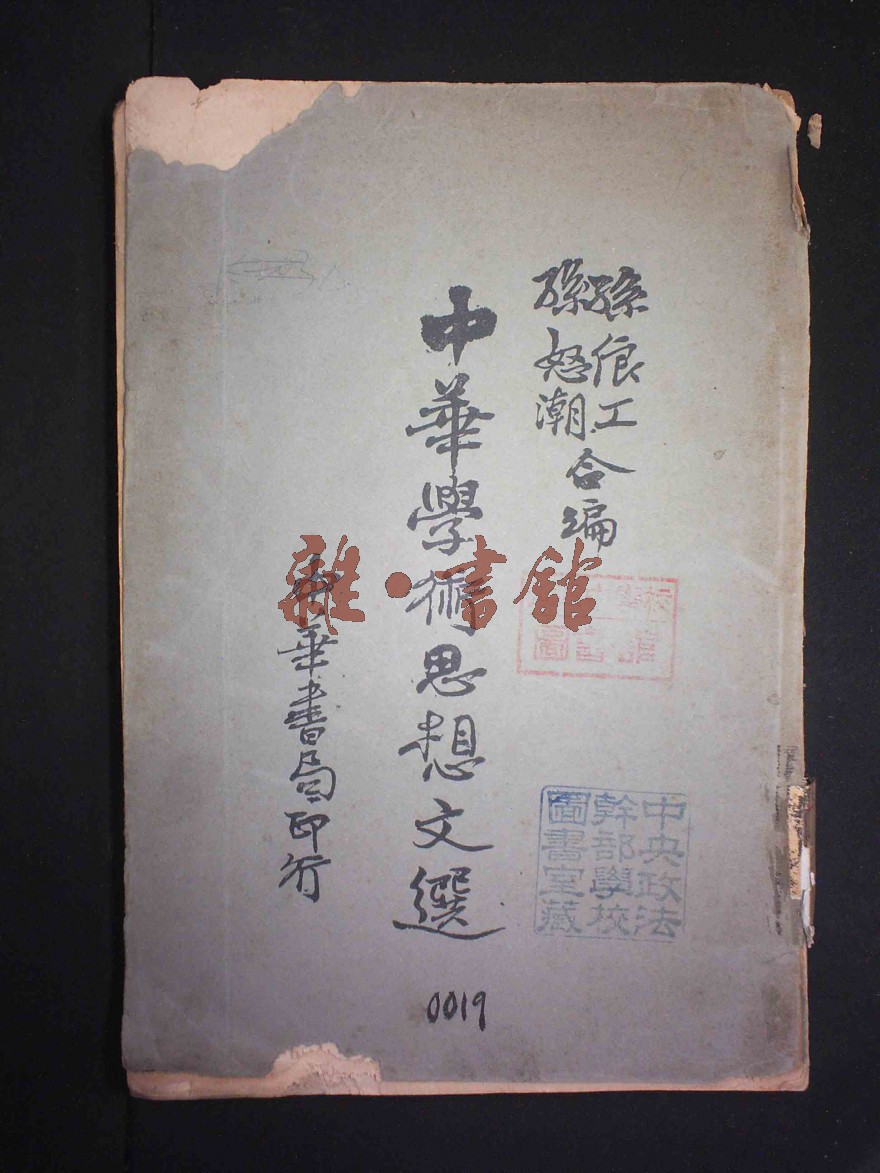 孫俍工
孫怒潮
合編
中華學術思想文選
中華書局印行
雜·書館
中央政法
幹部學校
圖書室藏
0019